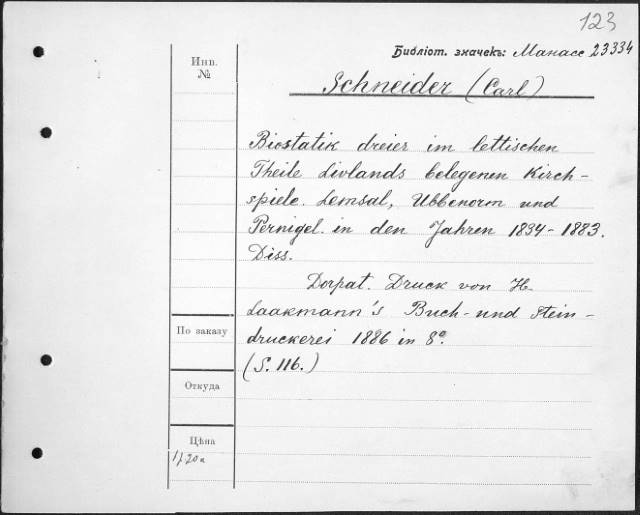 123
Библіот. значекъ: Манасс 23334
Инв.
№
Schneider (Carl)
Biostatik dreier im lettischen
Theile Livlands belegenen Kirch-
spiele. Lemsal, Ubbenorm und
Pernigel. in den Jahren 1834-1883.
Diss.
Dorpat. Druck von H.
Laakmann's Buch- und Stein-
druckerei 1886 in 8°.
(S. 116.)
По заказу
Откуда
Цѣна